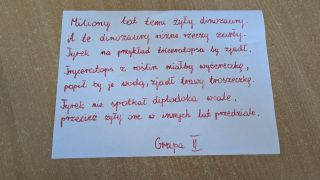 Miliony lat temu żyły dinozaury.
A te dinozaury różne rzeczy żarły.
Tyrek na przykład triceratopsa by zjadł.
Triceratops z roślin miałby wyżereczkę,
popił by je wodą, zjadł trawy troszeczkę.
Tyrek nie spotkał diplodoka wcale,
przecież żyły one w innych lat przedziale.
Grupa II